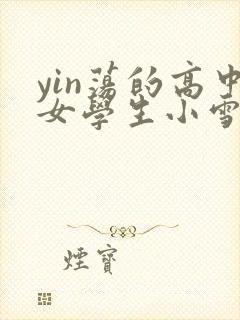 yin蕩的高中
女學生小雪
煙寶